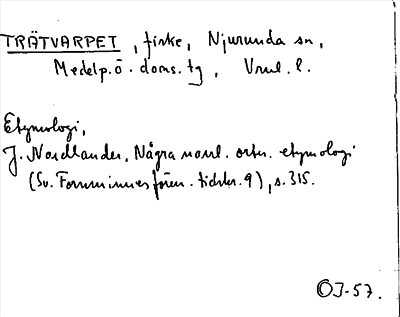 TRÄTVARPET, fiske, Njurunda sn,
Medelp. ö. doms. tg, Vnrl. l.
Etymologi,
J. Nordlander, Några norrl. ortn. etymologi
(Sv. Fornminnesfören. tidskr. 9), s. 315.
OJ-57.